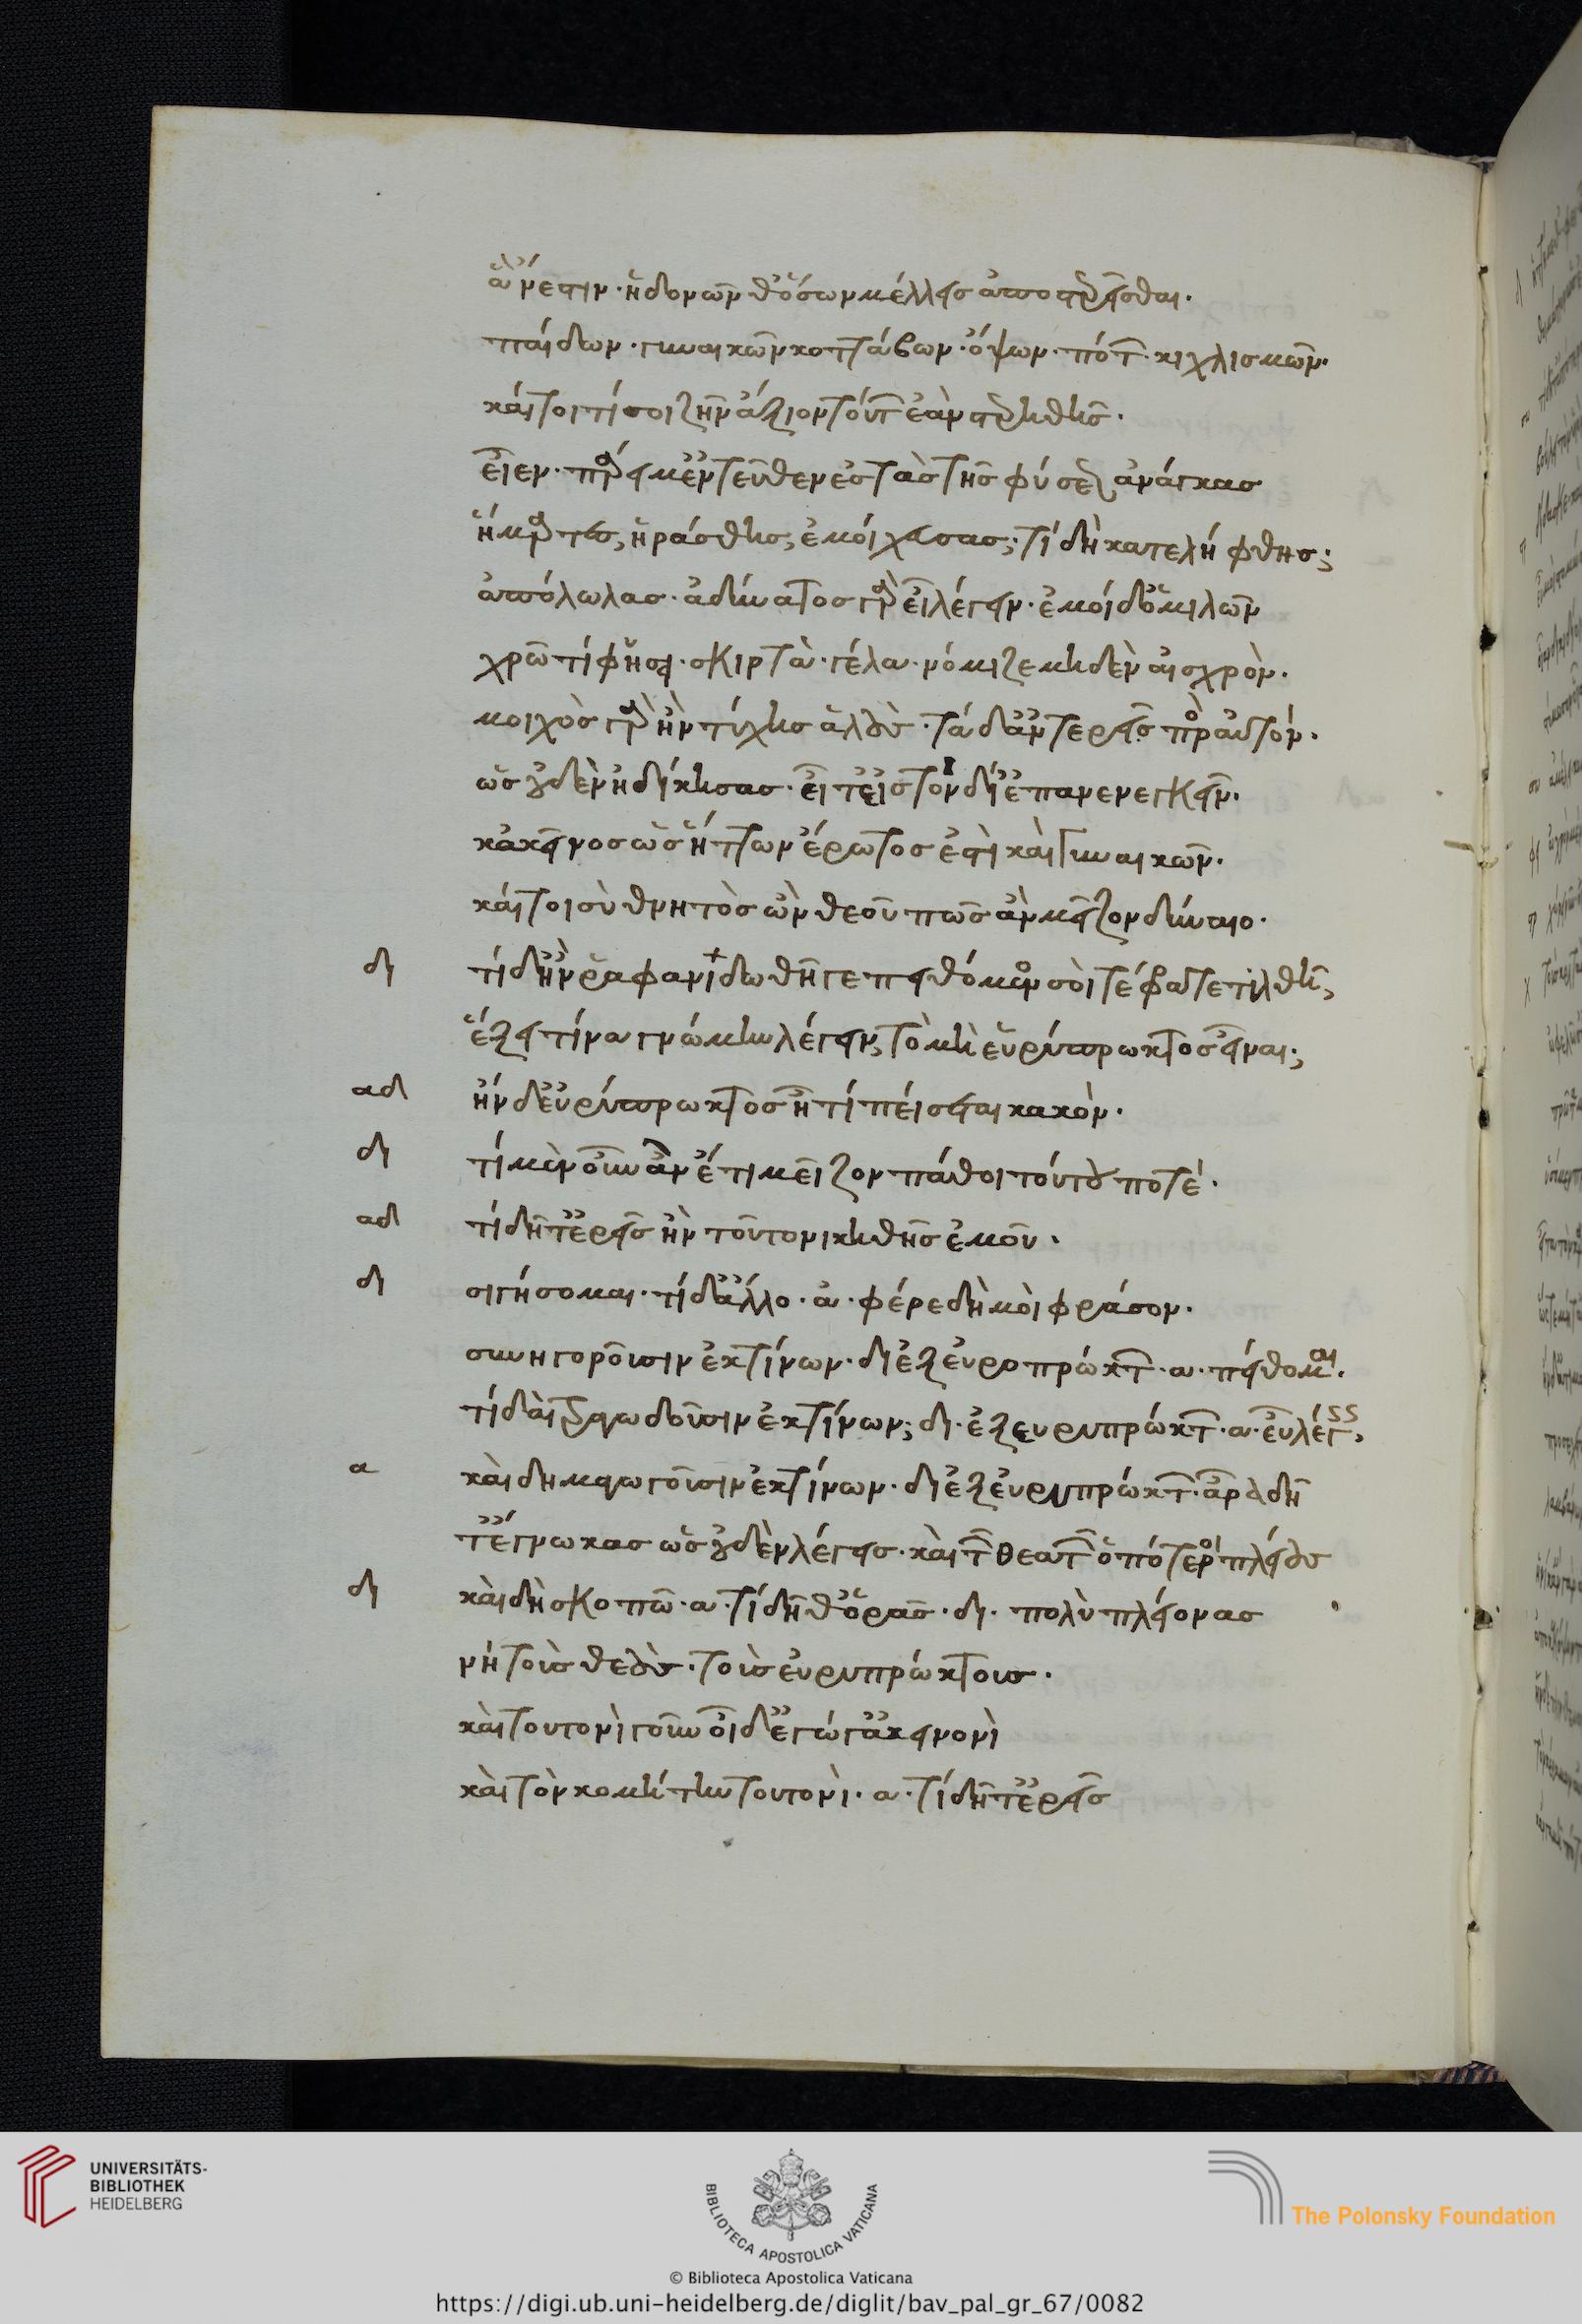 ἃ ́νεστιν· ἡδονῶν θ' ὅσων μέλλεις ἀποστερεῖσθαι·
παίδων· γυναικῶν κοττάβων· ὄψων· πότων· κιχλισμῶν·
καίτοι τί σοι ζῆν ἄξιον τούτων ἐὰν στερηθῆς·
εἶεν· πάρειμ' ἐντεῦθεν ἐς τὰς τῆς φύσεως ἀνάγκας
ἥμαρτες, ἠράσθης, ἐμοίχευσας; τί δὴ κατελήφθης;
ἀπόλωλας· ἀδύνατος γὰρ εἶ λέγειν· ἐμοὶ δ' ὁμιλῶν
χρῶ τί φήσει· σκιρτὰ· γέλα· νόμιζε μηδὲν αἰσχρὸν·
μοιχὸς γὰρ ἢν τύχης ἁλοὺς· τάδ' ἀντερεῖς πρὸς αὐτόν·
ὡς οὐδὲν ἠδίκησας· εἶτ' εἰς τὸν δί' ἐπανενεγκεῖν·
κἀκεῖνος ὡς ἥττων ἔρωτος ἐστὶ καὶ γυναικῶν·
καίτοι σὺ θνητὸς ὢν θεοῦ πῶς ἂν μεῖζον δύναιο·
δι τί δ' ἢν ῥαφανιδωθῆ γε πειθόμενός σοι τέφρα τε τιλθῆ;
ἕξει τίνα γνώμην λέγειν, τὸ μὴ εὐρύπρωκτος εἶναι;
αδ ἤν δ' εὐρύπρωκτος ἦ τί πείσεται κακὸν·
δι τί μὲν οὖν ἂν ἔτι μεῖζον πάθοι τούτου ποτέ·
αδ τί δῆτ' ἐρεῖς ἢν τοῦτο νικηθῆς ἐμοῦ·
δι σιγήσομαι· τί δ' ἄλλο· ἀ· φέρε δὴ μοὶ φράσον·
συνηγοροῦσιν ἐκ τίνων· δι ἐξ εὐρυπρώκτων· α· πείθομαι·
τί δαὶ τραγωδοῦσιν ἐκ τίνων; δι· ἐξ εὐρυπρώκτων· α· εὖ λέγεις,
α καὶ δημαγωγοῦσιν ἐκ τίνων· δι ἐξ εὐρυπρώκτων· ἆρα δῆ
τ' ἔγνωκας ὡς οὐδὲν λέγεις· καὶ τῶν θεατῶν ὁπότεροι πλείους
δι καὶ δὴ σκοπῶ· α· τί δῆθ' ὁρᾶς· δι· πολὺ πλείονας
νή τοὺς θεοὺς· τοὺς εὐρυπρώκτους·
καὶ τουτονὶ γοῦν οἶδ' ἐγώ γ' ἀκεινονὶ
καὶ τὸν κομήτην τουτονὶ· α· τί δῆτ' ἐρεῖς
UNIVERSITÄTS-
BIBLIOTHEK
HEIDELBERG
BIBLIOTECA APOSTOLICA VATICANA
The Polonsky Foundation
© Biblioteca Apostolica Vaticana
https://digi.ub.uni-heidelberg.de/diglit/bav_pal_gr_67/0082